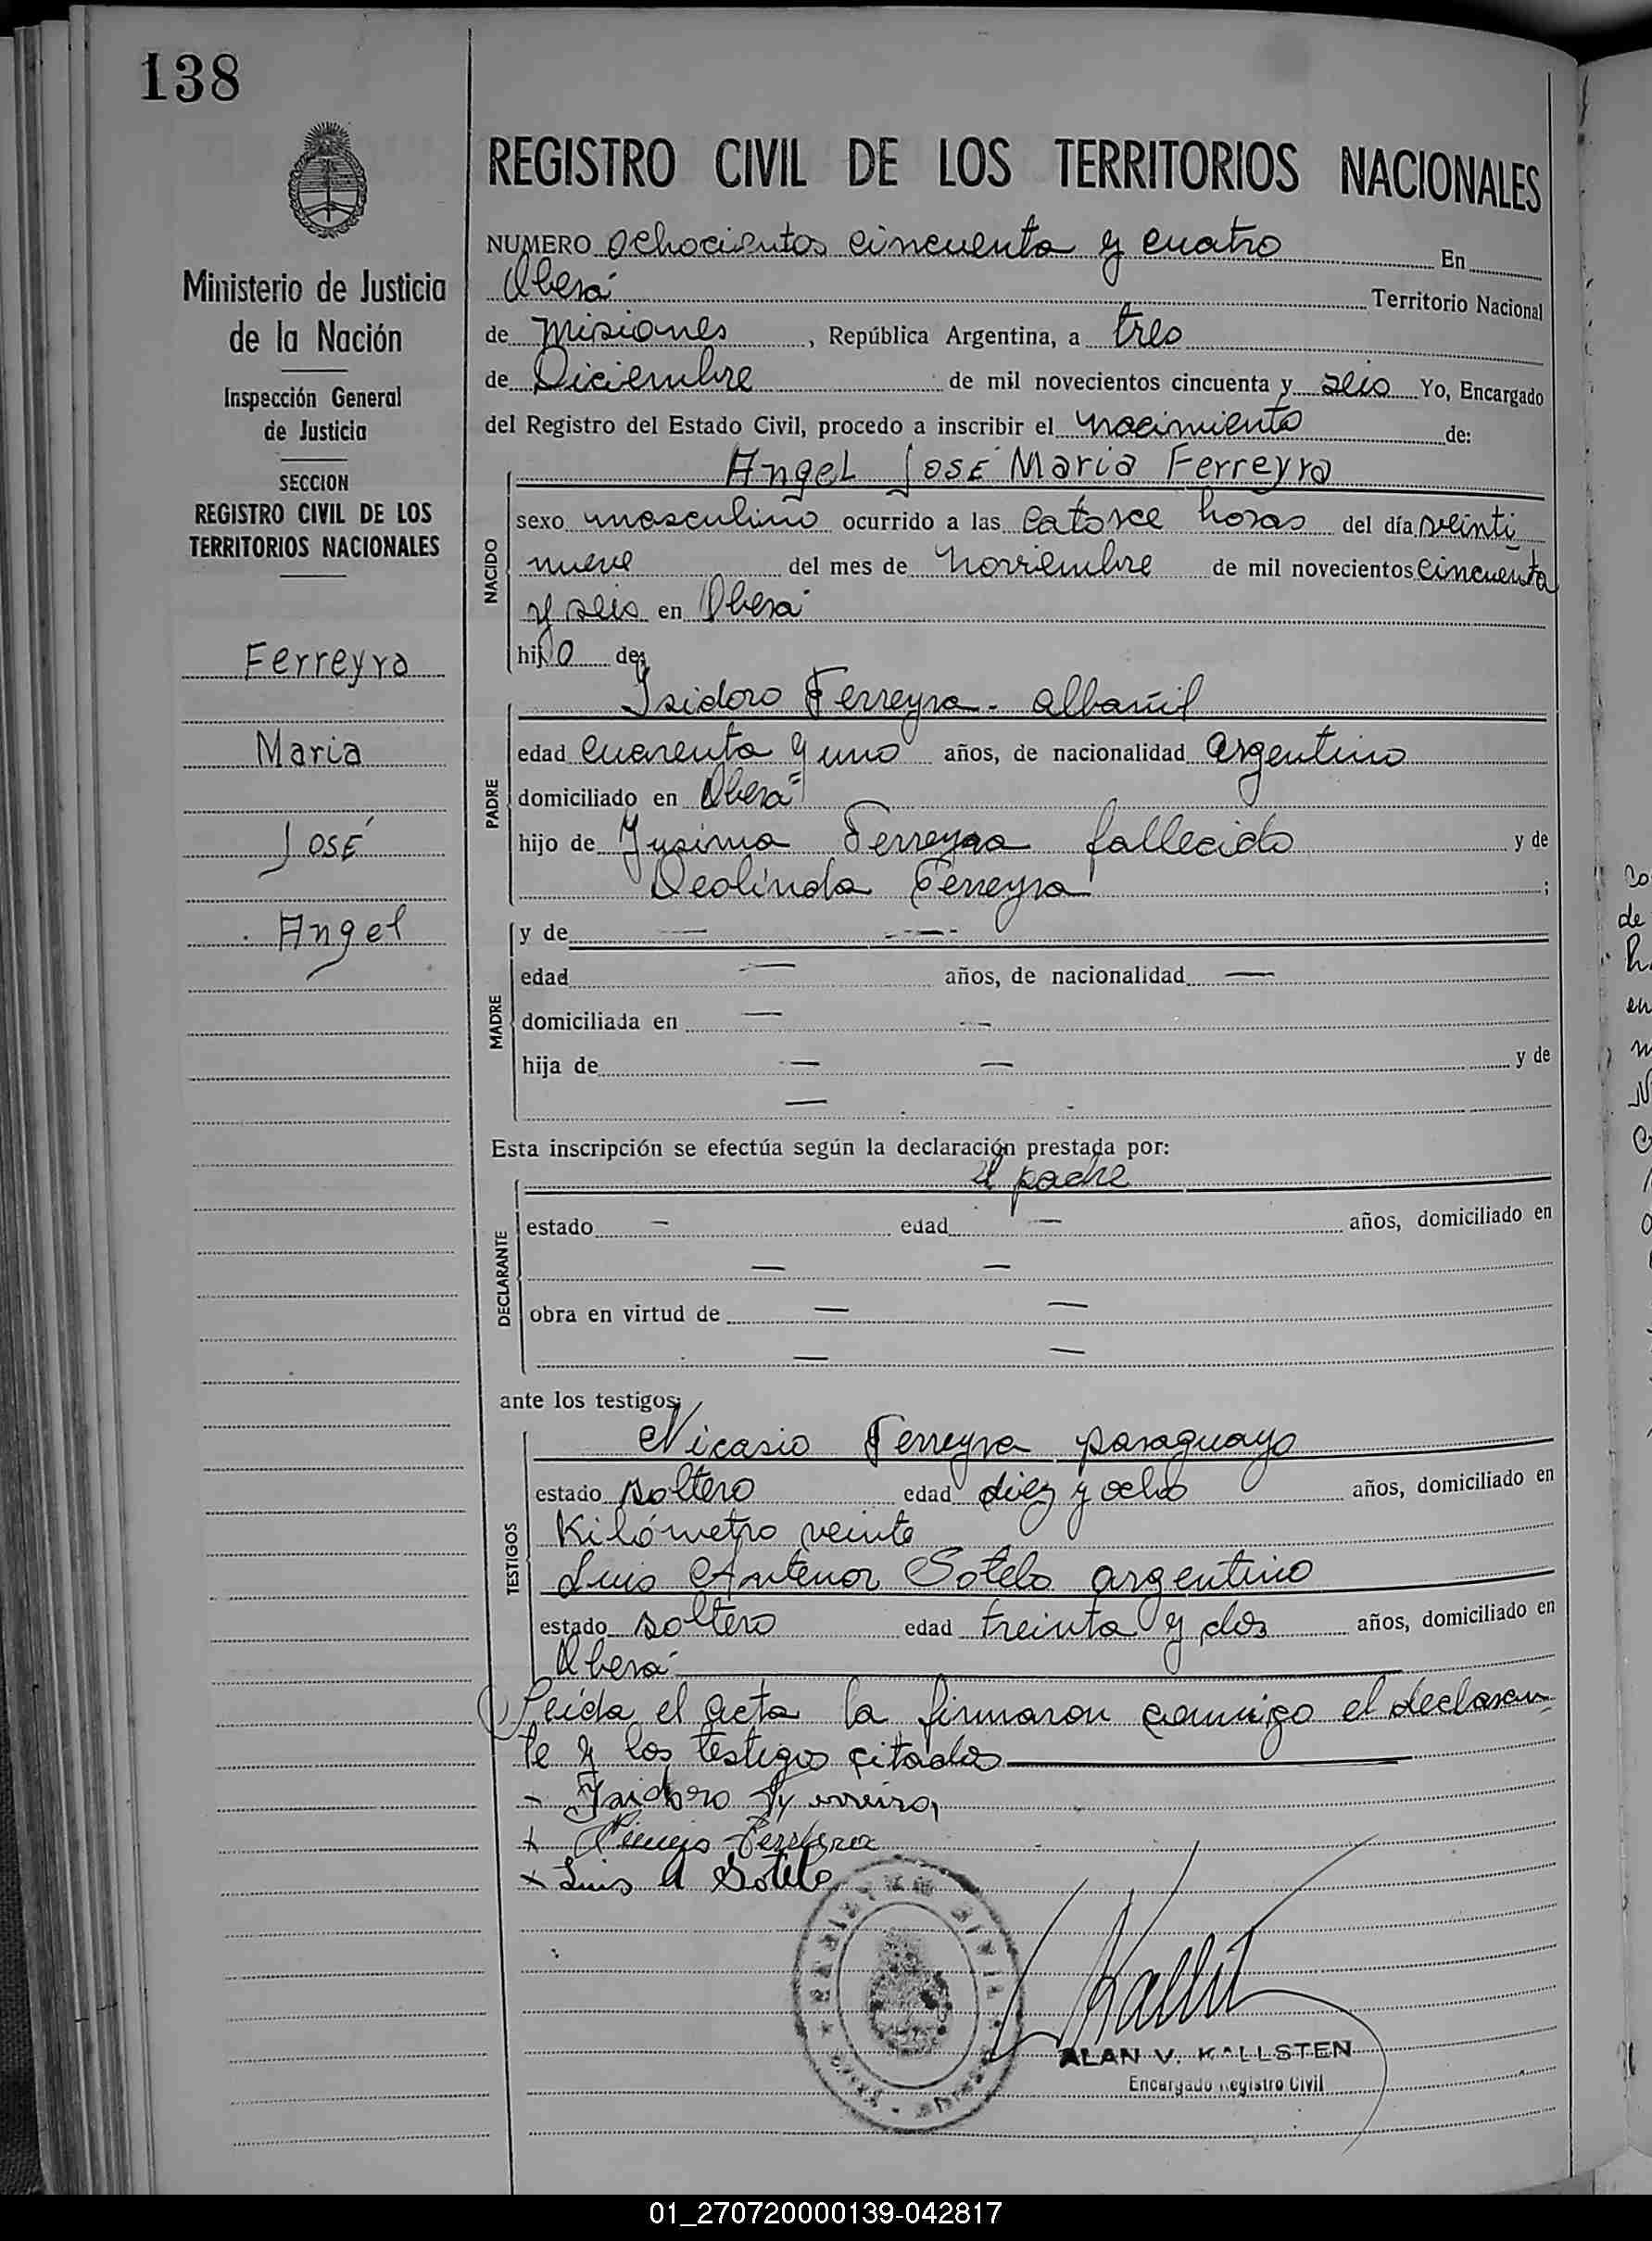 138
Ministerio de Justicia
de la Nación
Inspección General
de Justicia
SECCION
REGISTRO CIVIL DE LOS
TERRITORIOS NACIONALES
Ferreyra
Maria
José
Angel
REGISTRO CIVIL DE LOS TERRITORIOS NACIONALES
NUMERO ochocientos cincuenta y cuatro En
Oberá Territorio Nacional
de Misiones, República Argentina, a tres
de Diciembre de mil novecientos cincuenta y seis Yo, Encargado
del Registro del Estado Civil, procedo a inscribir el nacimiento de:
Angel José Maria Ferreyra
NACIDO
sexo masculino ocurrido a las catorce horas del día veinti
nueve del mes de Noviembre de mil novecientos cincuenta
y seis en Oberá
hijo de:
Isidoro Ferreyra - albañil
PADRE
edad cuarenta y uno años, de nacionalidad argentino
domiciliado en Oberá
hijo de Ferreyra fallecido y de
Deolinda Ferreyra ;
MADRE
y de — —
edad — años, de nacionalidad —
domiciliada en — —
hija de — — y de
—
Esta inscripción se efectúa según la declaración prestada por:
el padre
DECLARANTE
estado — edad — años, domiciliado en
— —
obra en virtud de — —
— —
ante los testigos:
Nicasio Ferreyra paraguayo
TESTIGOS
estado soltero edad diez y ocho años, domiciliado en
Kilómetro veinte
Luis Antenor Sotelo argentino
estado soltero edad treinta y dos años, domiciliado en
Oberá
Leída el acta la firmaron conmigo el declaran
te y los testigos citados
- Isidoro
x
x Luis A Sotelo
ALAN V. KALLSTEN
Encargado Registro Civil
01_270720000139-042817